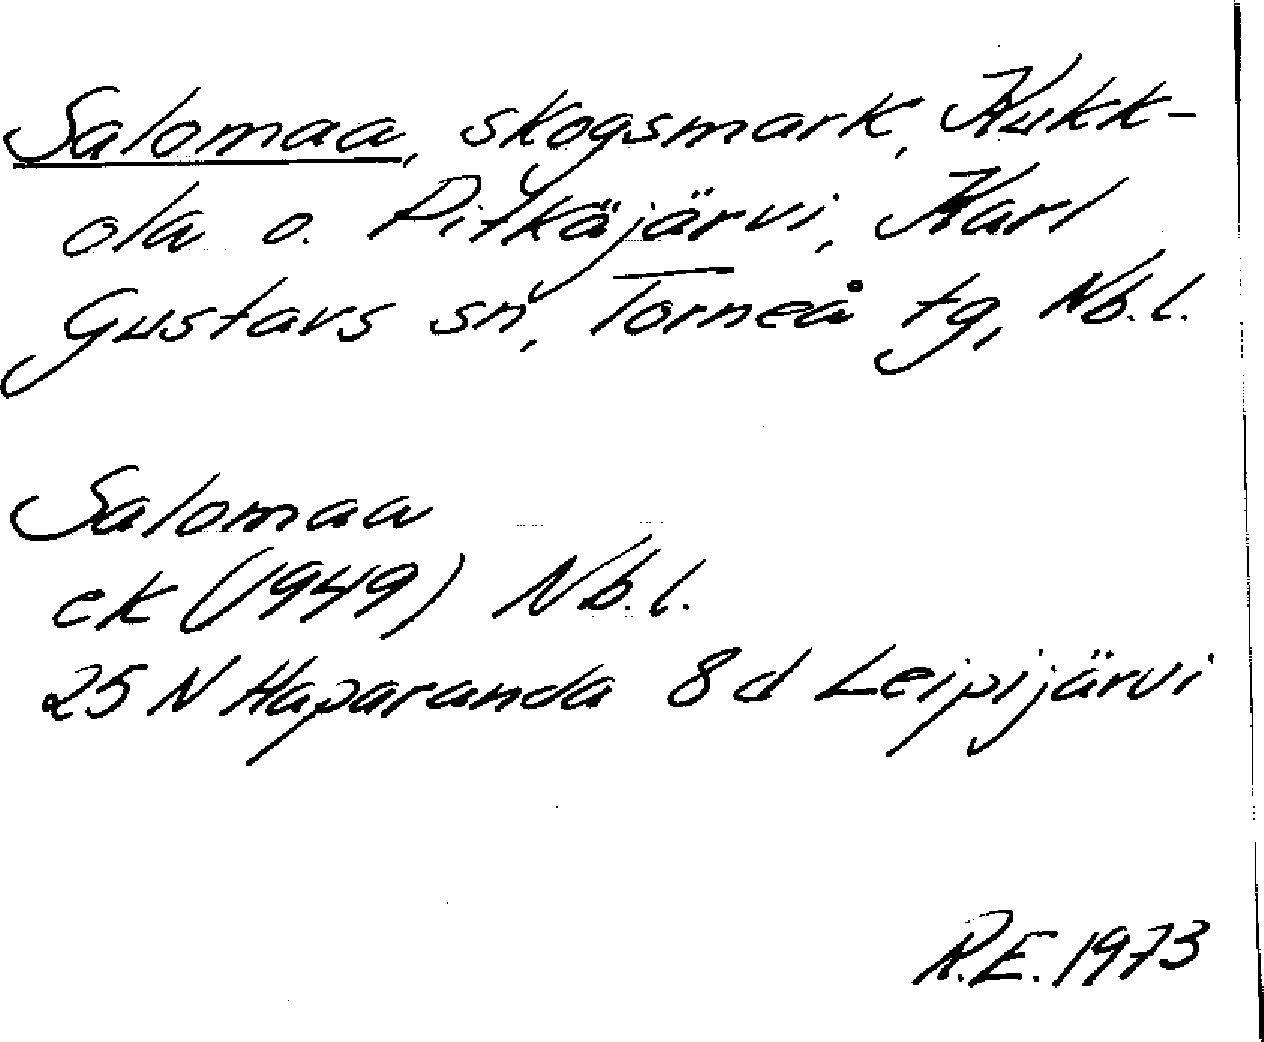 Salomaa, skogsmark, Kukk-
ola o. Pitkäjärvi, Karl
Gustavs sn, Torneå tg, Nb.l.
Salomaa
ek (1949) Nb.l.
25 N Haparanda 8 d Leipijärvi
R.E. 1973